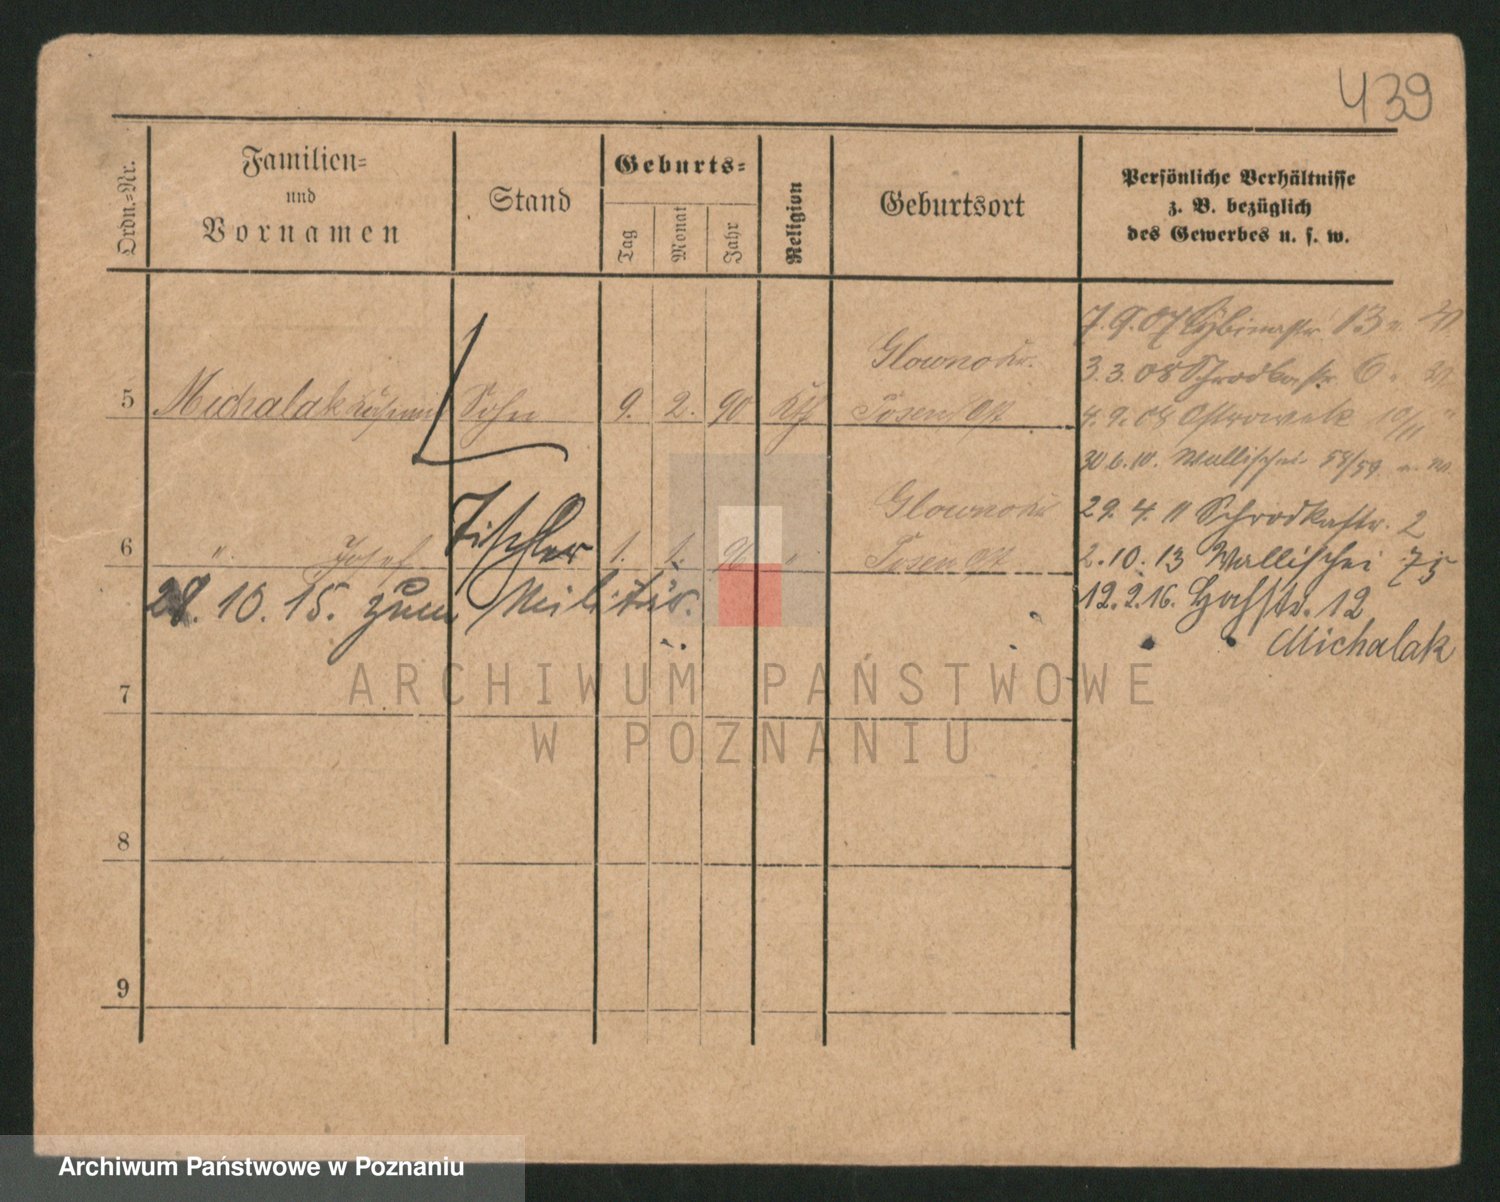 439
Ordn.-Nr.
Familien-
und
Vornamen
Stand
Geburts-
Tag
Monat
Jahr
Religion
Geburtsort
Persönliche Verhältnisse
z. B. bezüglich
des Gewerbes u. s. w.
7.9.07 Cybinastr. 13
3.3.08 Schrodkastr. 6
Glowno Kr.
5 Michalak Sohn 9. 2. 90 Kth Posen Ost
4.9.08 Ostrowek 10/11 "
30.6.10. Wallischei 58/59
Glowno Kr
29. 4. 11 Schrodkastr. 2
6 " Josef Tischler 1. 1. " Posen Ost
2.10.13 Wallischei 75
28.10.15. zum Militär.
12.2.16. Hochstr. 12
Michalak
7
ARCHIWUM PAŃSTWOWE
W POZNANIU
8
9
Archiwum Państwowe w Poznaniu